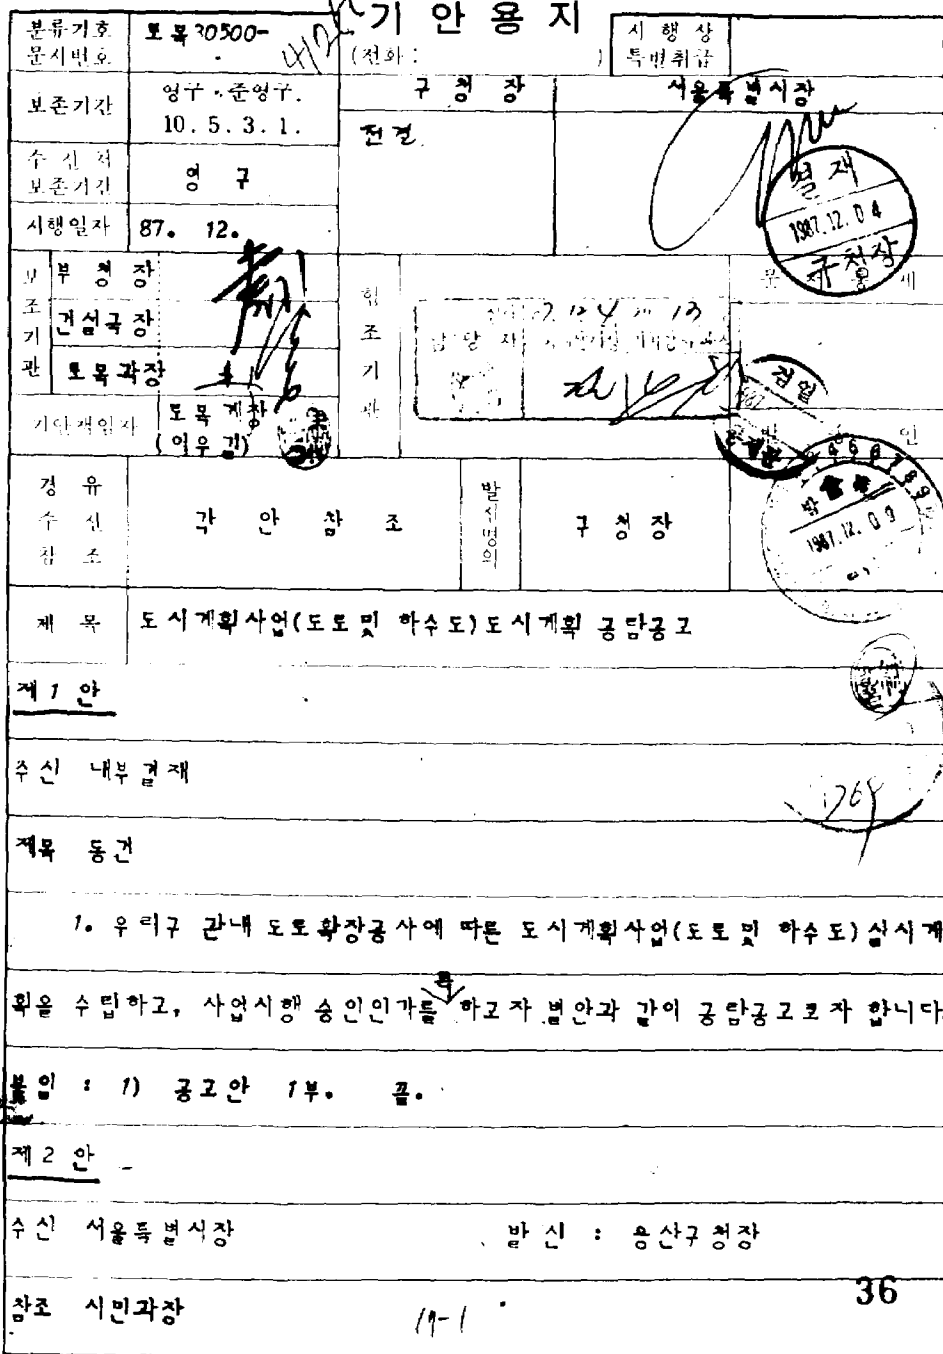 기 안 용 지
분류기호
문서번호
토목30500-
(전화 : )
시 행 상
특별취급
보존기간
영구 · 준영구.
10. 5. 3. 1.
구 청 장
서울특별시장
전결
수 신 처
보존기간
영 구
시행일자
87. 12.
결재
1987.12.04
구청장
보조기관
부 청 장
건설국장
토목과장
협조기관
기안책임자
토목계장
(이우길)
검열
1987.12.09
경 유
수 신
참 조
각 안 참 조
발신명의
구 청 장
제 목
도시계획사업(도로및 하수도)도시계획 공람공고
제 1 안
수신 내부결재
제목 동건
1. 우리구 관내 도로확장공사에 따른 도시계획사업(도로 및 하수도)실시계
획을 수립하고, 사업시행 승인인가를 득 하고자 별안과 같이 공람공고코자 합니다.
붙임 : 1) 공고안 1부. 끝.
제 2 안
수신 서울특별시장 발신 : 용산구청장
참조 시민과장
19-1
36